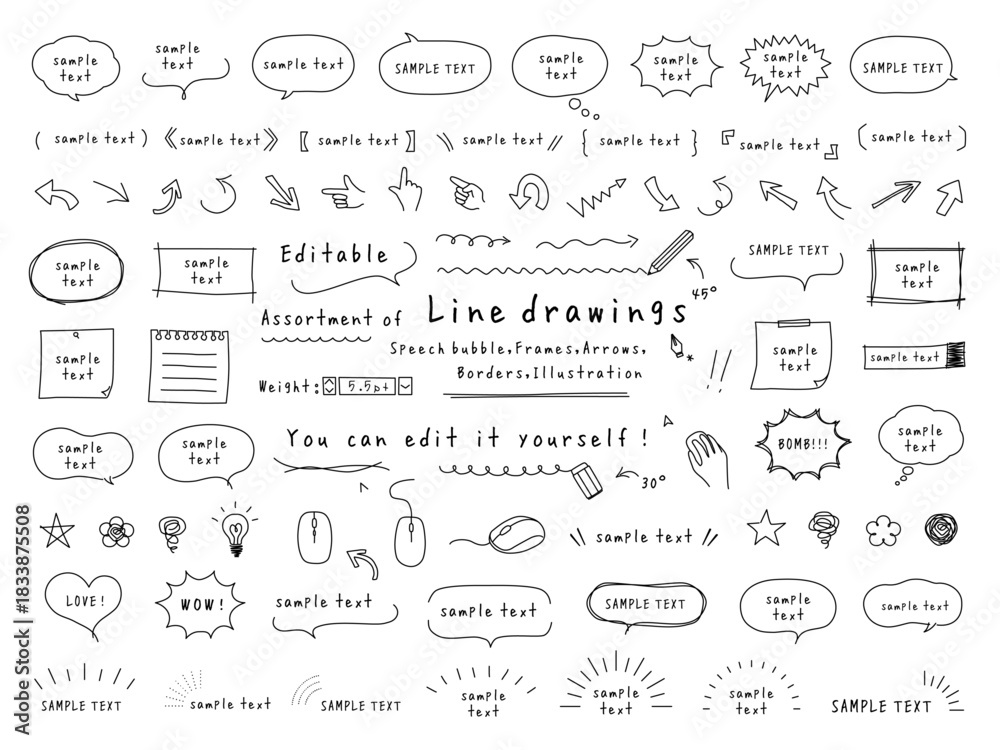 sample
text
sample
text
sample text
SAMPLE TEXT
sample
text
sample
text
sample
text
SAMPLE TEXT
( sample text )
《 sample text 》
【 sample text 】
\\ sample text //
{ sample text }
『 sample text 』
〔 sample text 〕
sample
text
sample
text
Editable
SAMPLE TEXT
sample
text
45°
Assortment of
Line drawings
Speech bubble,Frames,Arrows,
Borders,Illustration
Weight: 5.5pt
sample
text
sample
text
sample text
sample
text
sample
text
You can edit it yourself !
30°
BOMB!!!
sample
text
\\ sample text //
LOVE!
WOW!
sample text
sample text
SAMPLE TEXT
sample
text
sample text
SAMPLE TEXT
sample text
SAMPLE TEXT
sample
text
sample
text
sample
text
SAMPLE TEXT
Adobe Stock | #1833875508